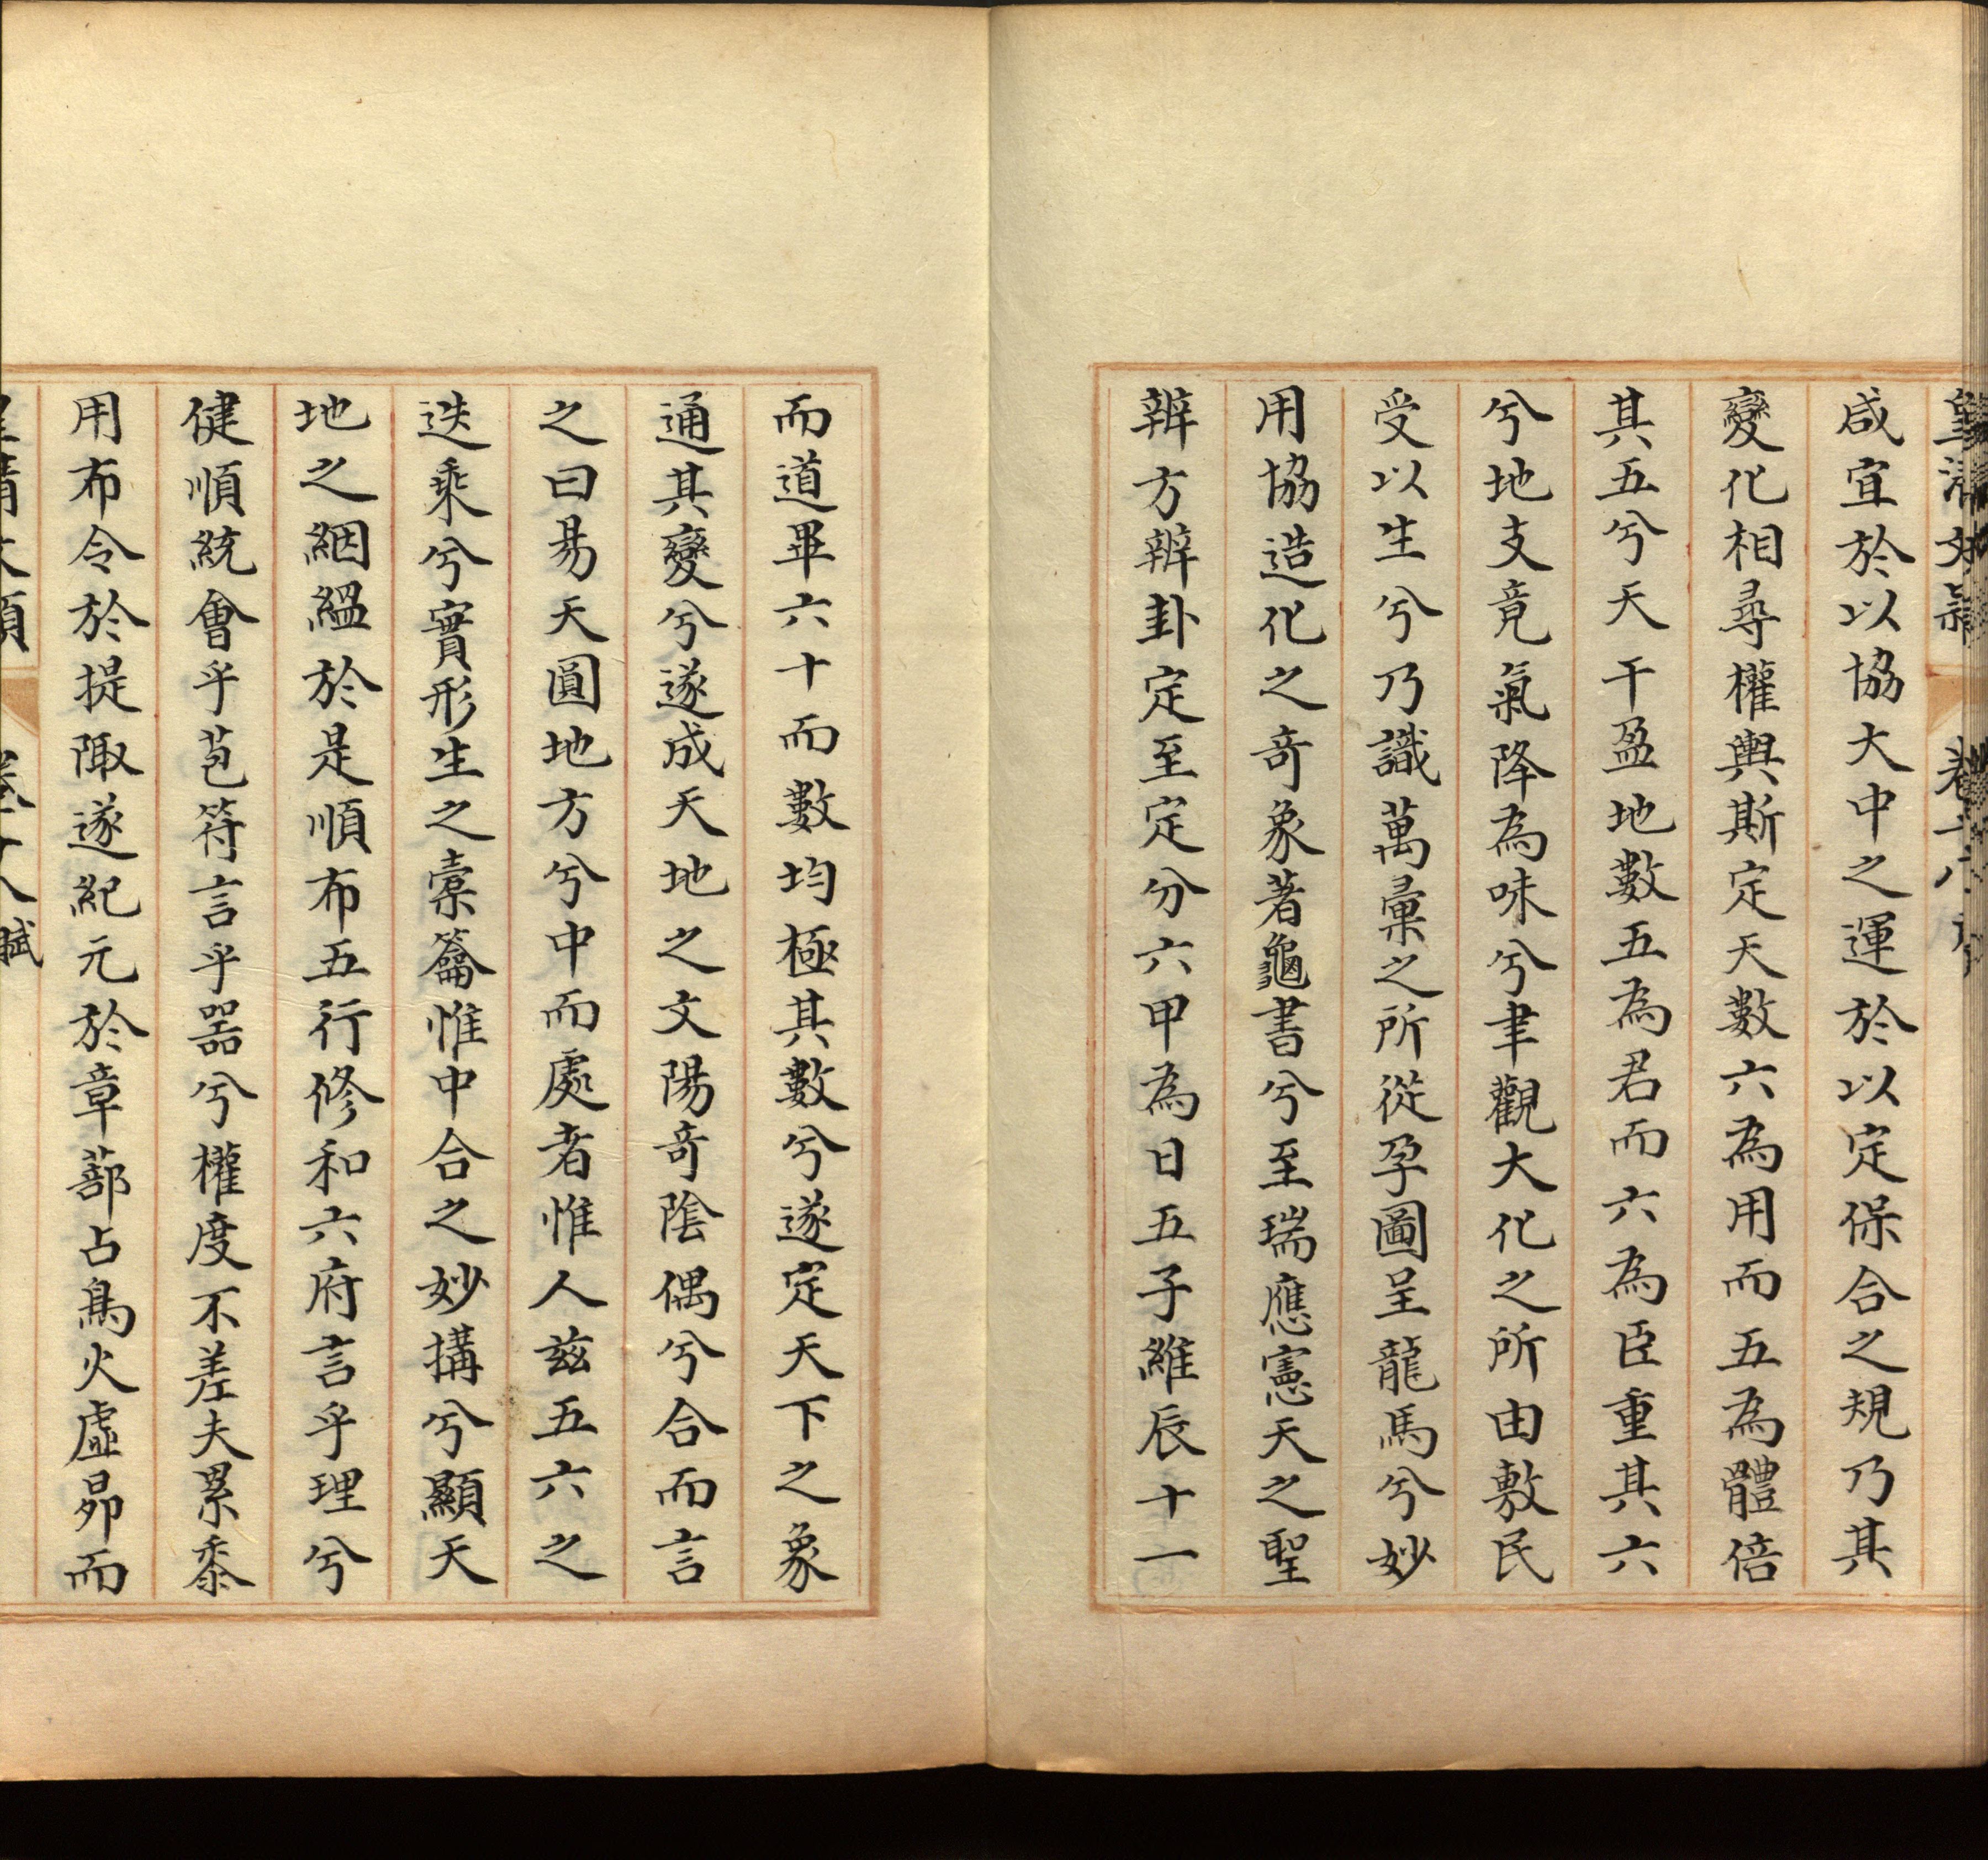 咸宜於以協大中之運於以定保合之規乃其
變化相尋權輿斯定天數六為用而五為體倍
其五兮天干盈地數五為君而六為臣重其六
兮地支竟氣降為味兮聿觀大化之所由敷民
受以生兮乃識萬彙之所從孕圖呈龍馬兮妙
用協造化之奇象著龜書兮至瑞應憲天之聖
辨方辨卦定至定分六甲為日五子維辰十一
而道畢六十而數均極其數兮遂定天下之象
通其變兮遂成天地之文陽奇陰偶兮合而言
之曰易天圓地方兮中而處者惟人茲五六之
迭乘兮實形生之橐籥惟中合之妙搆兮顯天
地之絪縕於是順布五行修和六府言乎理兮
健順統會乎苞符言乎器兮權度不差夫累黍
用布令於提陬遂紀元於章蔀占鳥火虛昴而